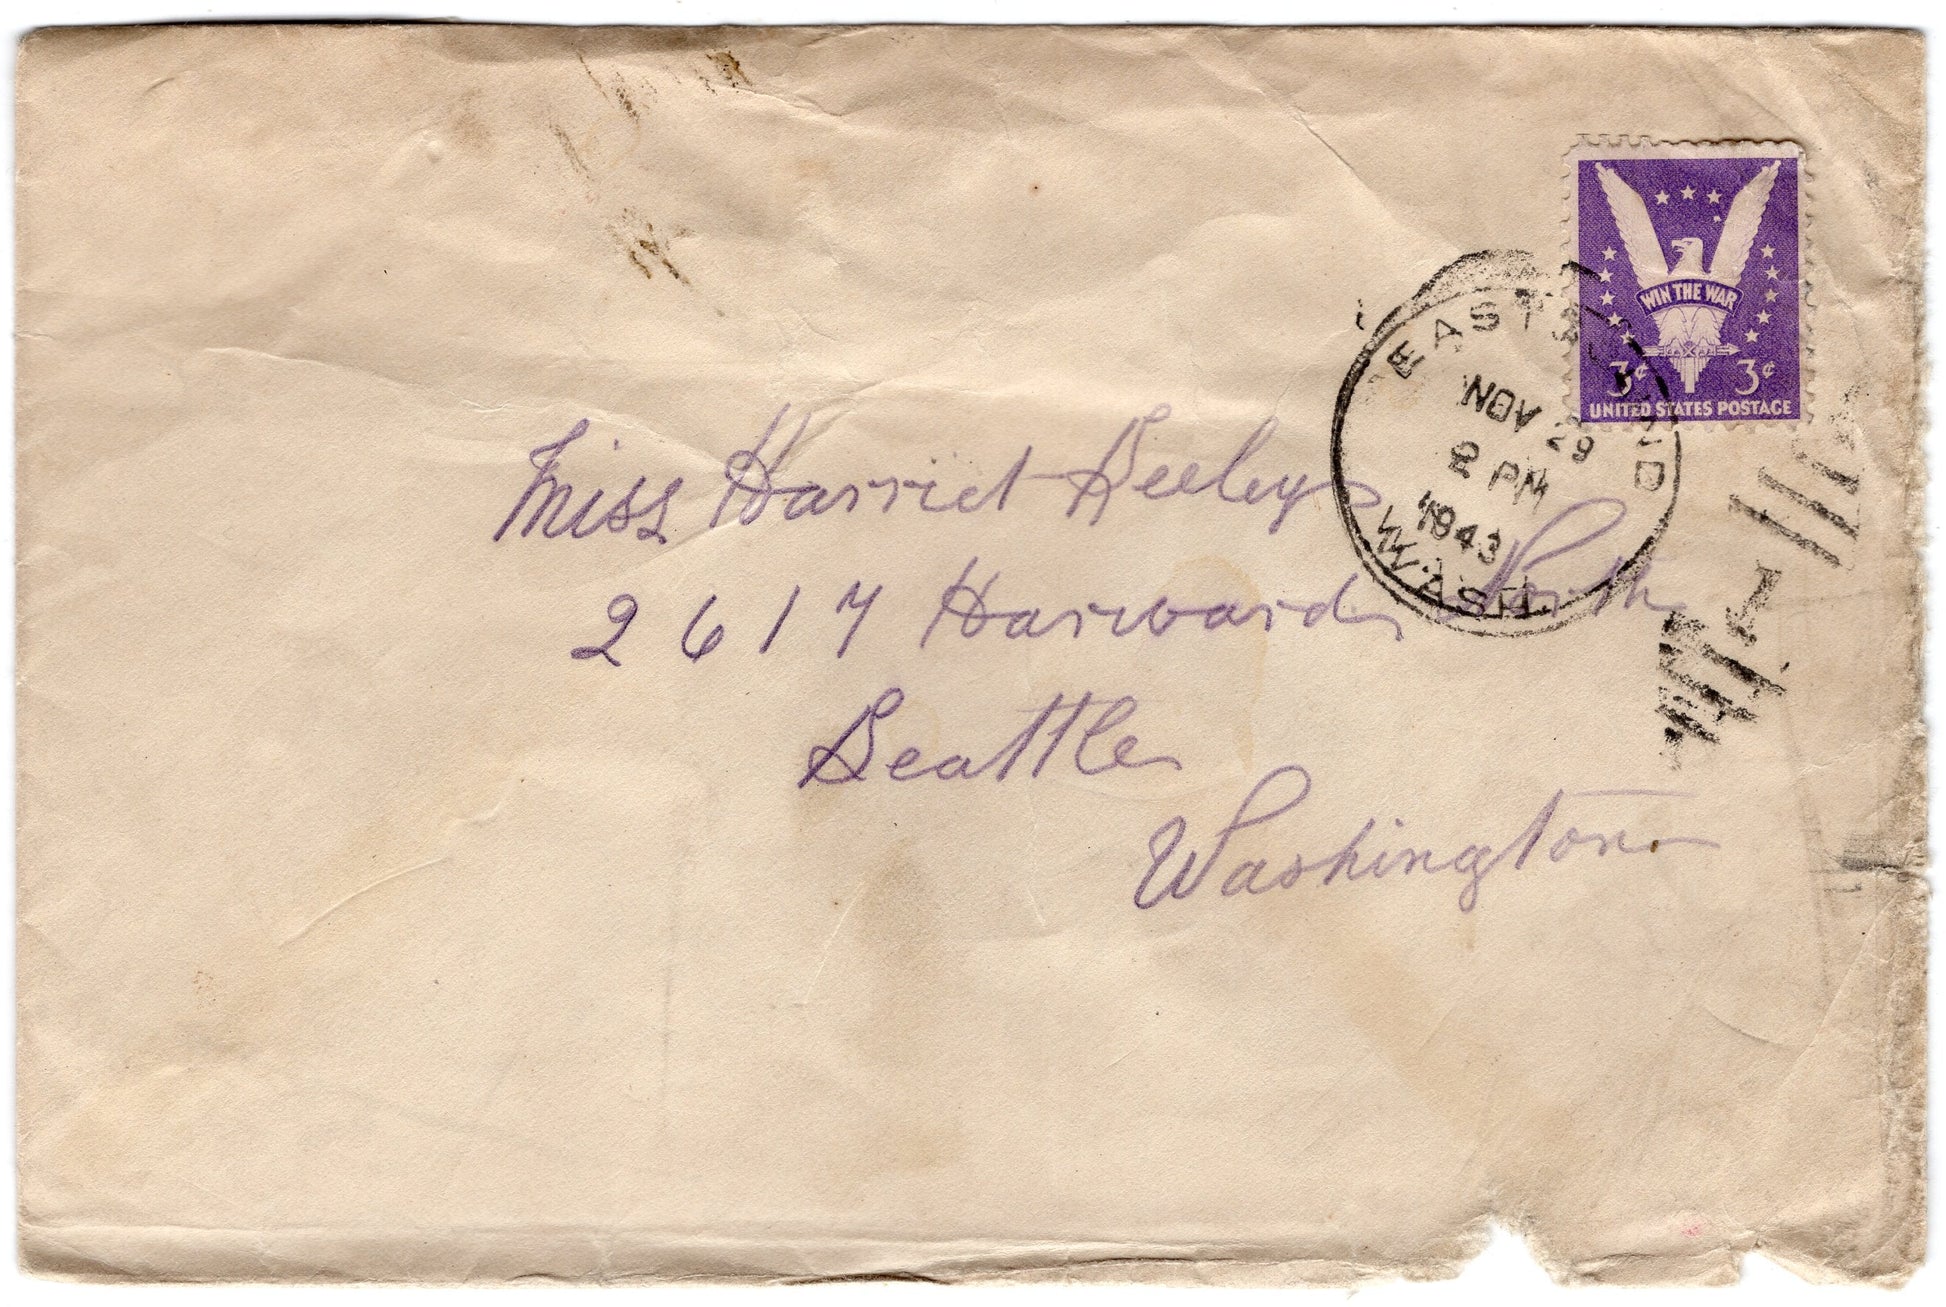 WIN THE WAR
3¢ 3¢
UNITED STATES POSTAGE
EAST
NOV 29
2 PM
1943
WASH.
Miss Harriet Seeley
2617 Harvard North
Seattle
Washington